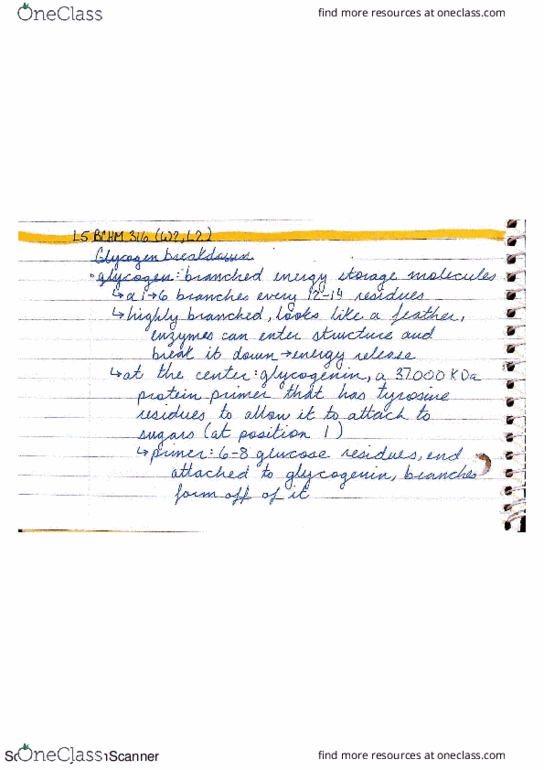 OneClass
find more resources at oneclass.com
L5 BCHM 316 (W2, L2)
Glycogen breakdown
• glycogen: branched energy storage molecules
↳ α 1→6 branches every 12-14 residues
↳ highly branched, looks like a feather,
enzymes can enter structure and
break it down → energy release
↳ at the center: glycogenin, a 37.000 KDa
protein primer that has tyrosine
residues to allow it to attach to
sugars (at position 1)
↳ primer: 6-8 glucose residues, end
attached to glycogenin, branches
form off of it
OneClass
Scanner
find more resources at oneclass.com